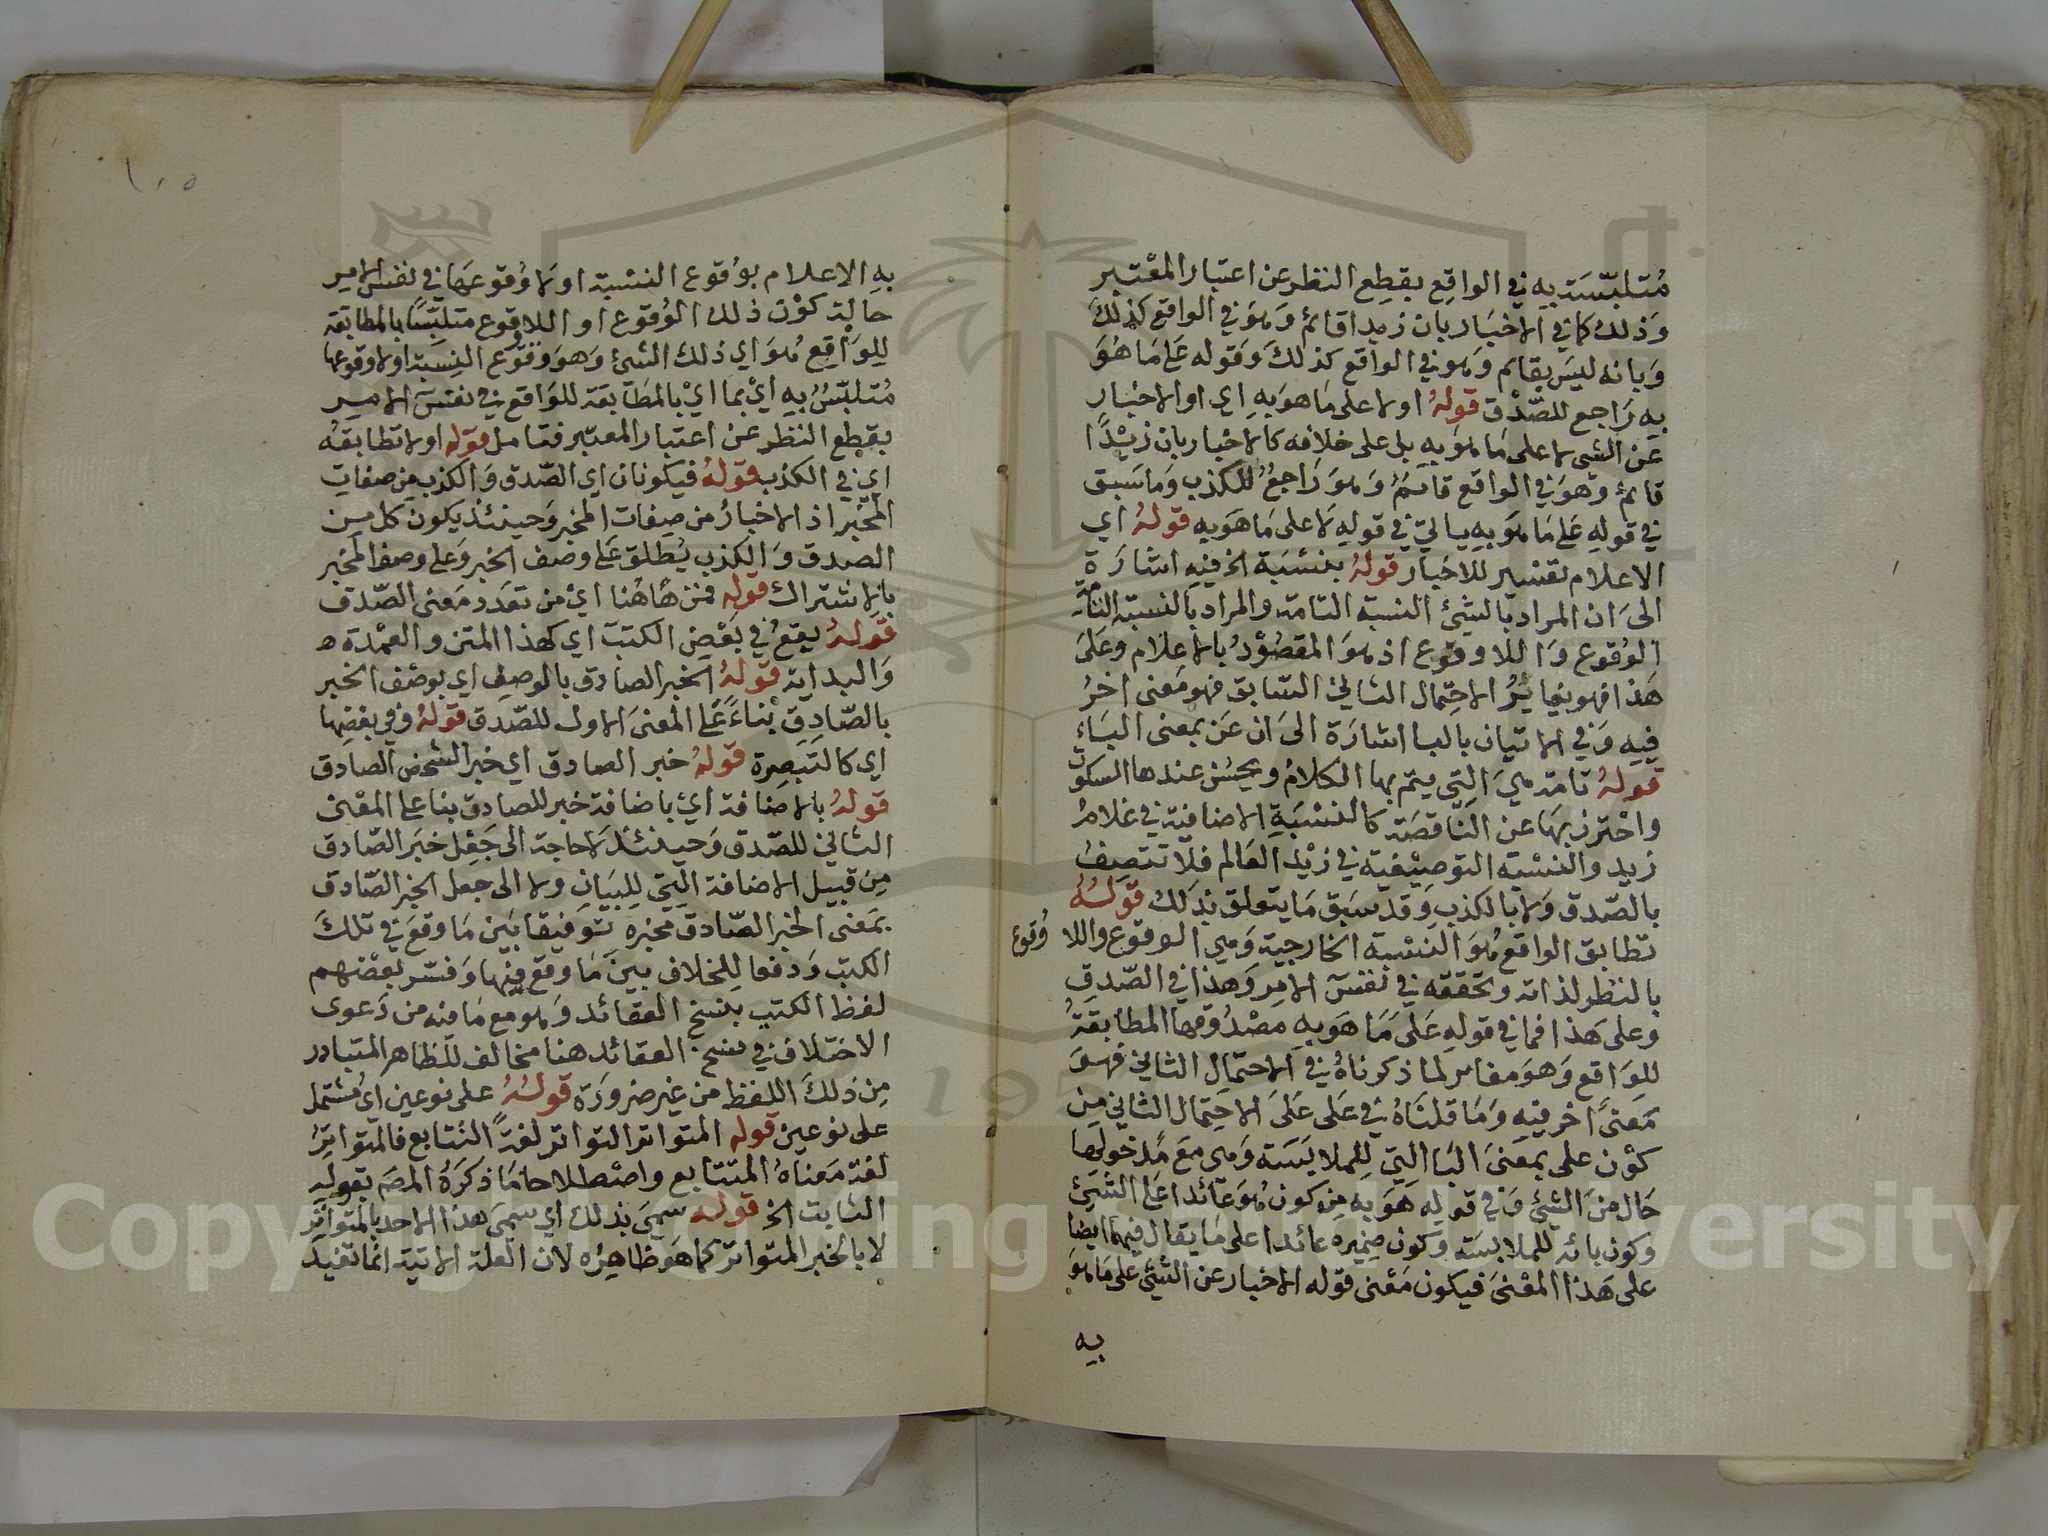 متلبسة به في الواقع بقطع النظر عن اعتبار المعتبر
وذلك كما في الاخبار بان زيدا قائم وهو في الواقع كذلك
وبانه ليس بقائم وهو في الواقع كذلك وقوله على ما هو
به راجع للصدق قوله اولا على ما هو به اي او الاخبار
عن الشي لا على ما هو به بل على خلافه كالاخبار بان زيدا
قائم وهو في الواقع قائم وهو راجع للكذب وما سبق
في قوله على ما هو به ياتي في قوله لا على ما هو به قوله اي
الاعلام تفسير للاخبار قوله بنسبة الخ فيه اشارة
الى ان المراد بالشئ النسبة التامة والمراد بالنسبة التامة
الوقوع واللا وقوع اذ هو المقصود بالاعلام وعلى
هذا فهو يغاير الاحتمال الثاني السابق فهو معنى اخر
فيه وفي الاتيان بالبا اشارة الى ان عن بمعنى الباء
قوله تامة هي التي يتم بها الكلام ويحسن عندها السكوت
واحترز بها عن الناقصة كالنسبة الاضافية في غلام
زيد والنسبة التوصيفية في زيد العالم فلا تتصف
بالصدق ولا بالكذب وقد سبق ما يتعلق بذلك قوله
تطابق الواقع هو النسبة الخارجية وهي الوقوع واللا وقوع
بالنظر لذاته وتحققه في نفس الامر وهذا في الصدق
وعلى هذا فما في قوله على ما هو به مصدوقها المطابقة
للواقع وهو مغاير لما ذكرناه في الاحتمال الثاني فهو
معنى اخر فيه وما قلناه في على على الاحتمال الثاني من
كون على بمعنى البا التي للملابسة وهي مع مدخولها
حال من الشئ وفي قوله هو به من كون هو عائدا على الشئ
وكون بائه للملابسة وكون ضميره عائدا على ما يقال فيهما ايضا
على هذا المعنى فيكون معنى قوله الاخبار عن الشئ على ما هو
به
١٠٥
به الاعلام بوقوع النسبة او لا وقوعها في نفس الامر
حالة كون ذلك الوقوع او اللاوقوع متلبسا بالمطابقة
للواقع هو اي ذلك الشئ وهو وقوع النسبة اولا وقوعها
متلبس به اي بما اي بالمطابقة للواقع في نفس الامر
بقطع النظر عن اعتبار المعتبر فتامل قوله اولا تطابقه
اي في الكذب قوله فيكونان اي الصدق والكذب من صفات
المخبر اذ الاخبار من صفات المخبر وحينئذ يكون كل من
الصدق والكذب يطلق على وصف الخبر وعلى وصف المخبر
بالاشتراك قوله فمن هاهنا اي من تعدد معنى الصدق
قوله يقع في بعض الكتب اي كهذا المتن والعمدة
والبداية قوله الخبر الصادق بالوصف اي بوصف الخبر
بالصادق بناء على المعنى الاول للصدق قوله وفي بعضها
اي كالتبصرة قوله خبر الصادق اي خبر الشخص الصادق
قوله بالاضافة اي باضافة خبر للصادق بنا على المعنى
الثاني للصدق وحينئذ لا حاجة الى جعل خبر الصادق
من قبيل الاضافة التي للبيان ولا الى جعل الخبر الصادق
بمعنى الخبر الصادق مخبره توفيقا بين ما وقع في تلك
الكتب ودفعا للخلاف بين ما وقع فيها وفسر بعضهم
لفظ الكتب بنسخ العقائد وهو مع ما فيه من دعوى
الاختلاف في نسخ العقائد هنا مخالف للظاهر المتبادر
من ذلك اللفظ من غير ضرورة قوله على نوعين اي مشتمل
على نوعين قوله المتواتر التواتر لغة التتابع فالمتواتر
لغة معناه المتتابع واصطلاحا ما ذكره المصم بقوله
الثابت الخ قوله سمي بذلك اي سمي هذا الاحد بالمتواتر
لا بالخبر المتواتر كما هو ظاهره لان العلة الاتية انما تفيد